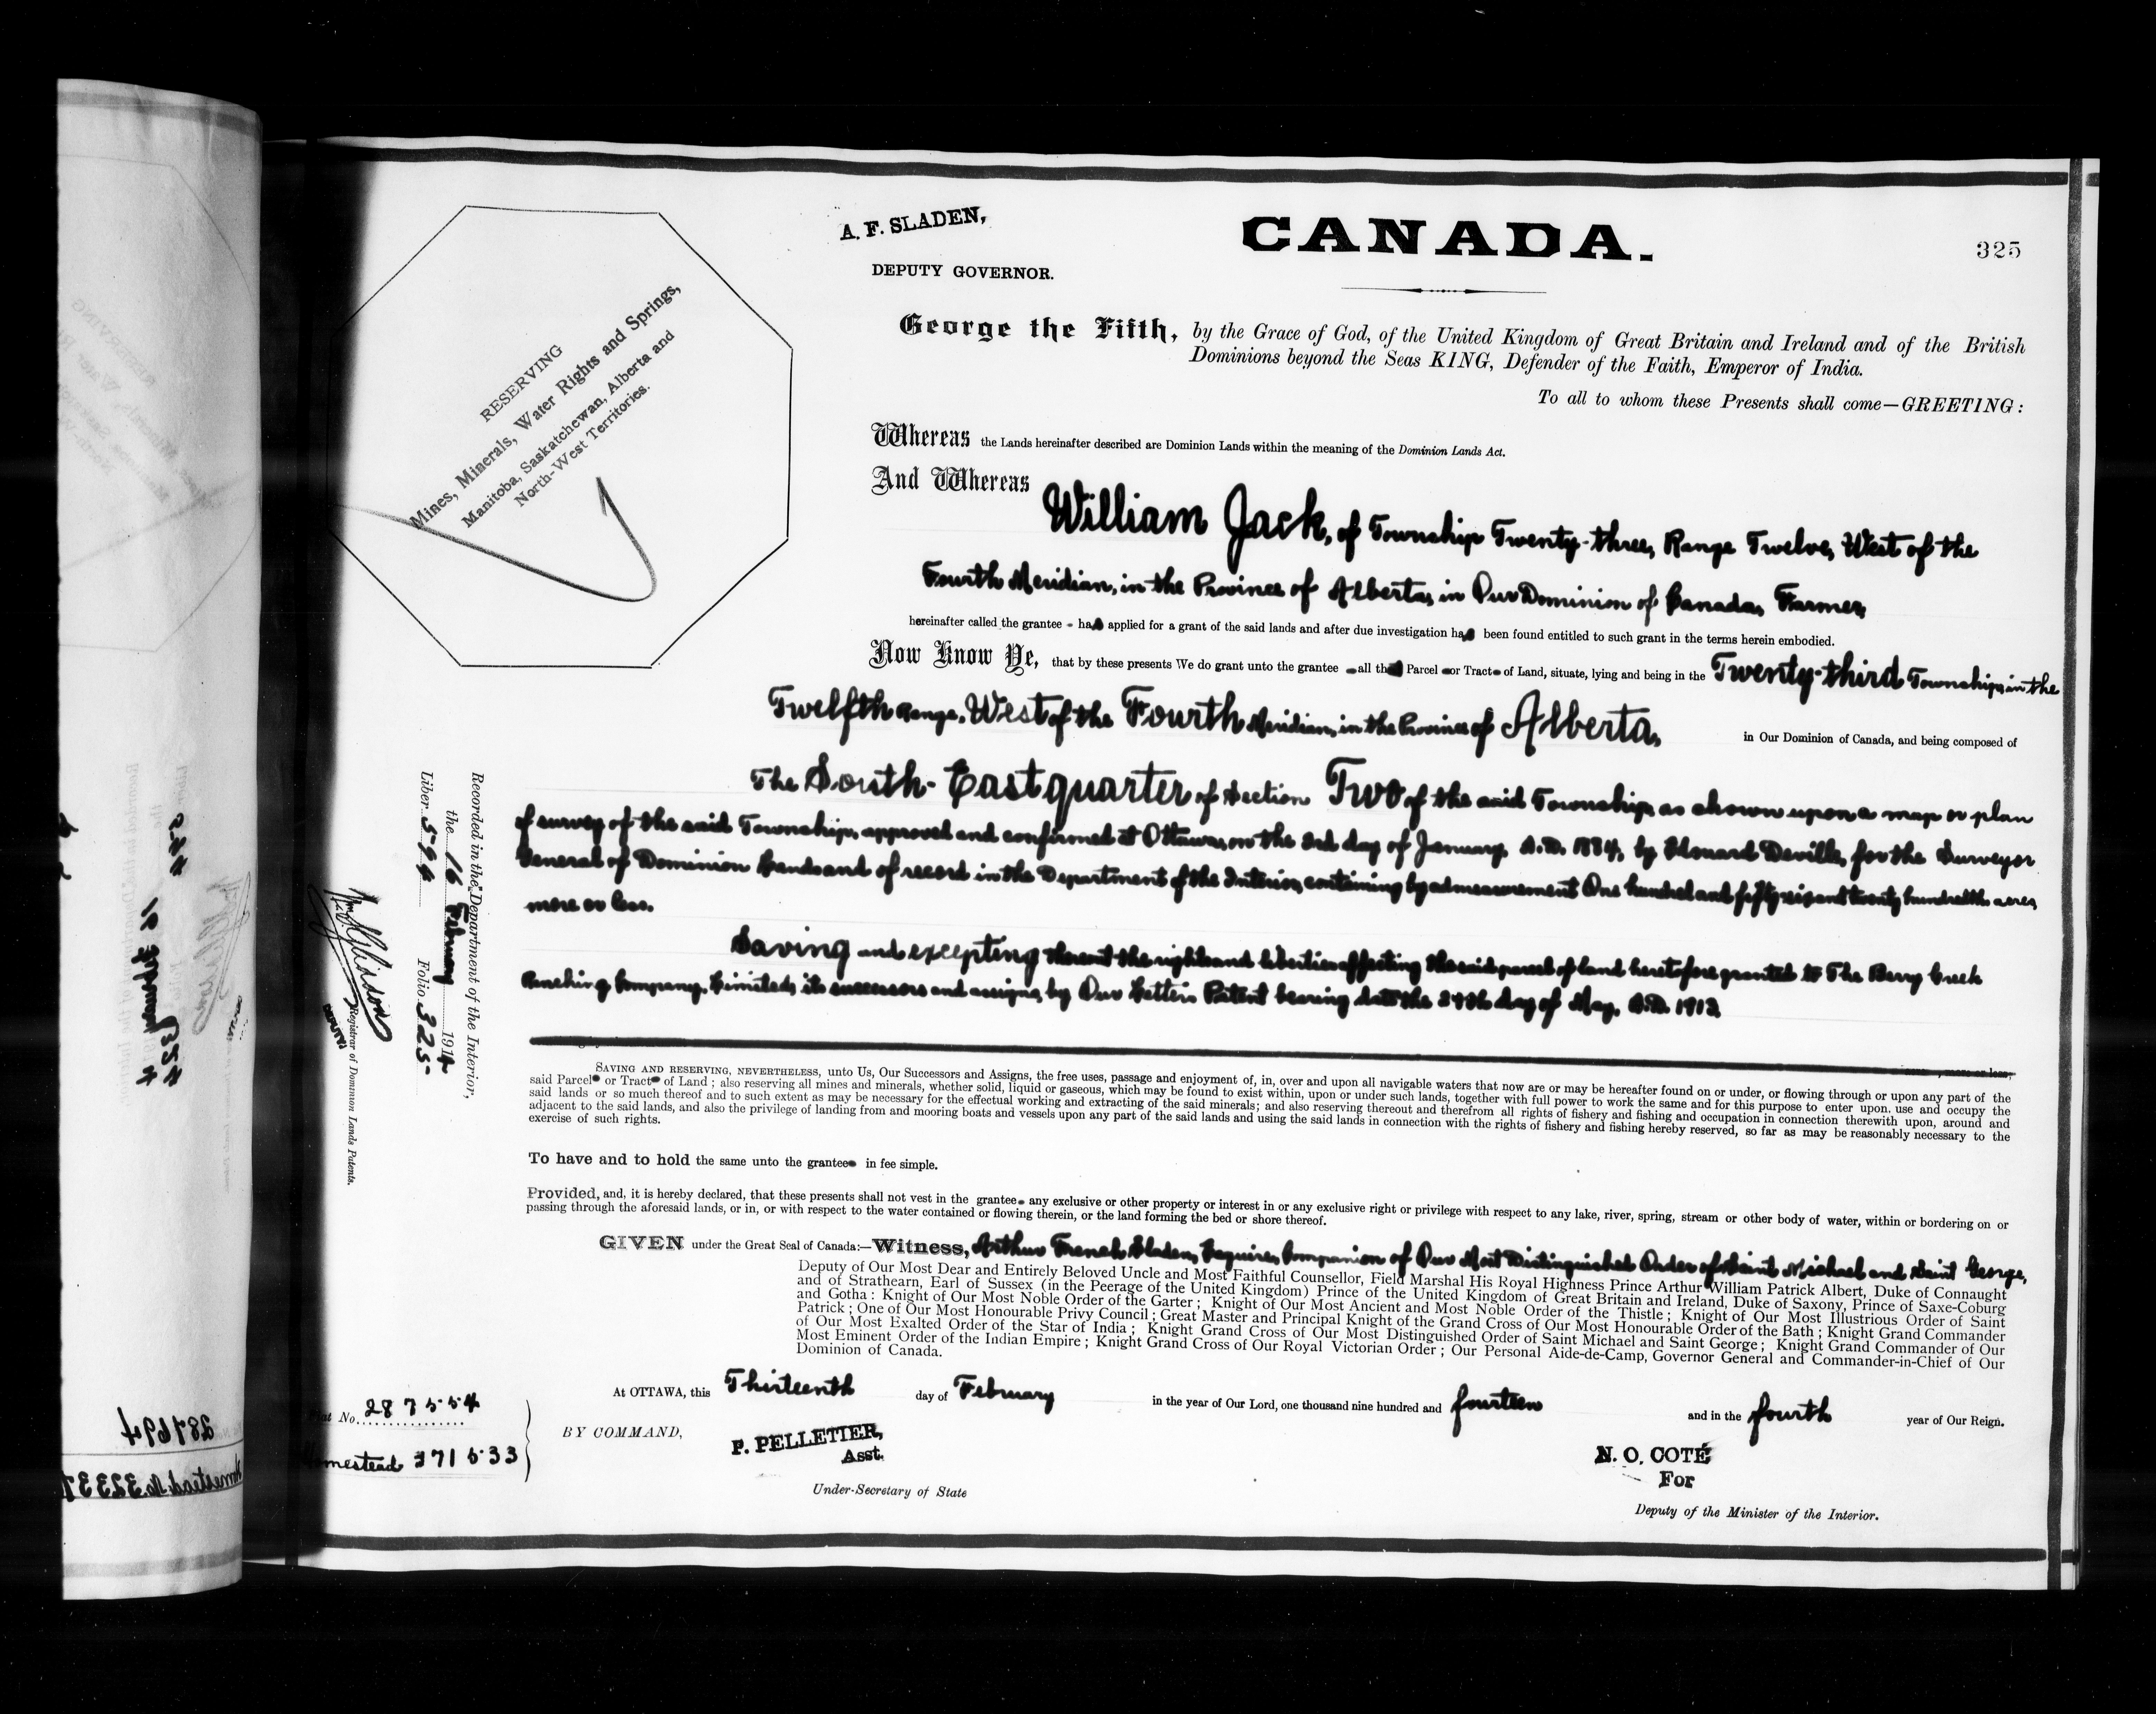 A. F. SLADEN,
DEPUTY GOVERNOR.
CANADA.
325
RESERVING
Mines, Minerals, Water Rights and Springs,
Manitoba, Saskatchewan, Alberta and
North-West Territories.
George the Fifth, by the Grace of God, of the United Kingdom of Great Britain and Ireland and of the British
Dominions beyond the Seas KING, Defender of the Faith, Emperor of India.
To all to whom these Presents shall come—GREETING:
Whereas the Lands hereinafter described are Dominion Lands within the meaning of the Dominion Lands Act.
And Whereas
William Jack, of Township Twenty-three, Range Twelve, West of the
Fourth Meridian, in the Province of Alberta, in Our Dominion of Canada, Farmer,
hereinafter called the grantee - has applied for a grant of the said lands and after due investigation has been found entitled to such grant in the terms herein embodied.
Now Know Ye, that by these presents We do grant unto the grantee all that Parcel or Tract of Land, situate, lying and being in the Twenty-third Township, in the
Twelfth Range, West of the Fourth Meridian, in the Province of Alberta,
in Our Dominion of Canada, and being composed of
The South-East quarter of Section Two of the said Township, as shown upon a map or plan
of survey of the said Township, approved and confirmed at Ottawa, on the 3rd day of January, A.D. 1884, by Edouard Deville, for the Surveyor
General of Dominion Lands and of record in the Department of the Interior, containing by admeasurement One hundred and fifty six and twenty hundredths acres,
more or less.
Saving and excepting thereout the rights and liberties affecting the said parcel of land heretofore granted to The Berry Creek
Ranching Company, Limited, its successors and assigns, by Our Letters Patent bearing date the 24th day of May, A.D. 1912.
SAVING AND RESERVING, NEVERTHELESS, unto Us, Our Successors and Assigns, the free uses, passage and enjoyment of, in, over and upon all navigable waters that now are or may be hereafter found on or under, or flowing through or upon any part of the
said Parcel or Tract of Land; also reserving all mines and minerals, whether solid, liquid or gaseous, which may be found to exist within, upon or under such lands, together with full power to work the same and for this purpose to enter upon, use and occupy the
said lands or so much thereof and to such extent as may be necessary for the effectual working and extracting of the said minerals; and also reserving thereout and therefrom all rights of fishery and fishing and occupation in connection therewith upon, around and
adjacent to the said lands, and also the privilege of landing from and mooring boats and vessels upon any part of the said lands and using the said lands in connection with the rights of fishery and fishing hereby reserved, so far as may be reasonably necessary to the
exercise of such rights.
To have and to hold the same unto the grantee in fee simple.
Provided, and, it is hereby declared, that these presents shall not vest in the grantee any exclusive or other property or interest in or any exclusive right or privilege with respect to any lake, river, spring, stream or other body of water, within or bordering on or
passing through the aforesaid lands, or in, or with respect to the water contained or flowing therein, or the land forming the bed or shore thereof.
GIVEN under the Great Seal of Canada:—Witness, Arthur French Sladen, Esquire, Companion of Our Most Distinguished Order of Saint Michael and Saint George,
Deputy of Our Most Dear and Entirely Beloved Uncle and Most Faithful Counsellor, Field Marshal His Royal Highness Prince Arthur William Patrick Albert, Duke of Connaught
and of Strathearn, Earl of Sussex (in the Peerage of the United Kingdom) Prince of the United Kingdom of Great Britain and Ireland, Duke of Saxony, Prince of Saxe-Coburg
and Gotha: Knight of Our Most Noble Order of the Garter; Knight of Our Most Ancient and Most Noble Order of the Thistle; Knight of Our Most Illustrious Order of Saint
Patrick; One of Our Most Honourable Privy Council; Great Master and Principal Knight of the Grand Cross of Our Most Honourable Order of the Bath; Knight Grand Commander
of Our Most Exalted Order of the Star of India; Knight Grand Cross of Our Most Distinguished Order of Saint Michael and Saint George; Knight Grand Commander of Our
Most Eminent Order of the Indian Empire; Knight Grand Cross of Our Royal Victorian Order; Our Personal Aide-de-Camp, Governor General and Commander-in-Chief of Our
Dominion of Canada.
At OTTAWA, this Thirteenth day of February in the year of Our Lord, one thousand nine hundred and fourteen and in the fourth year of Our Reign.
BY COMMAND,
P. PELLETIER,
Asst.
Under-Secretary of State
N. O. COTÉ
For
Deputy of the Minister of the Interior.
Recorded in the Department of the Interior,
the 16 February 1914
Liber 594 Folio 325
Registrar of Dominion Lands Patents.
DEPUTY
No. 287554
Homestead 371533